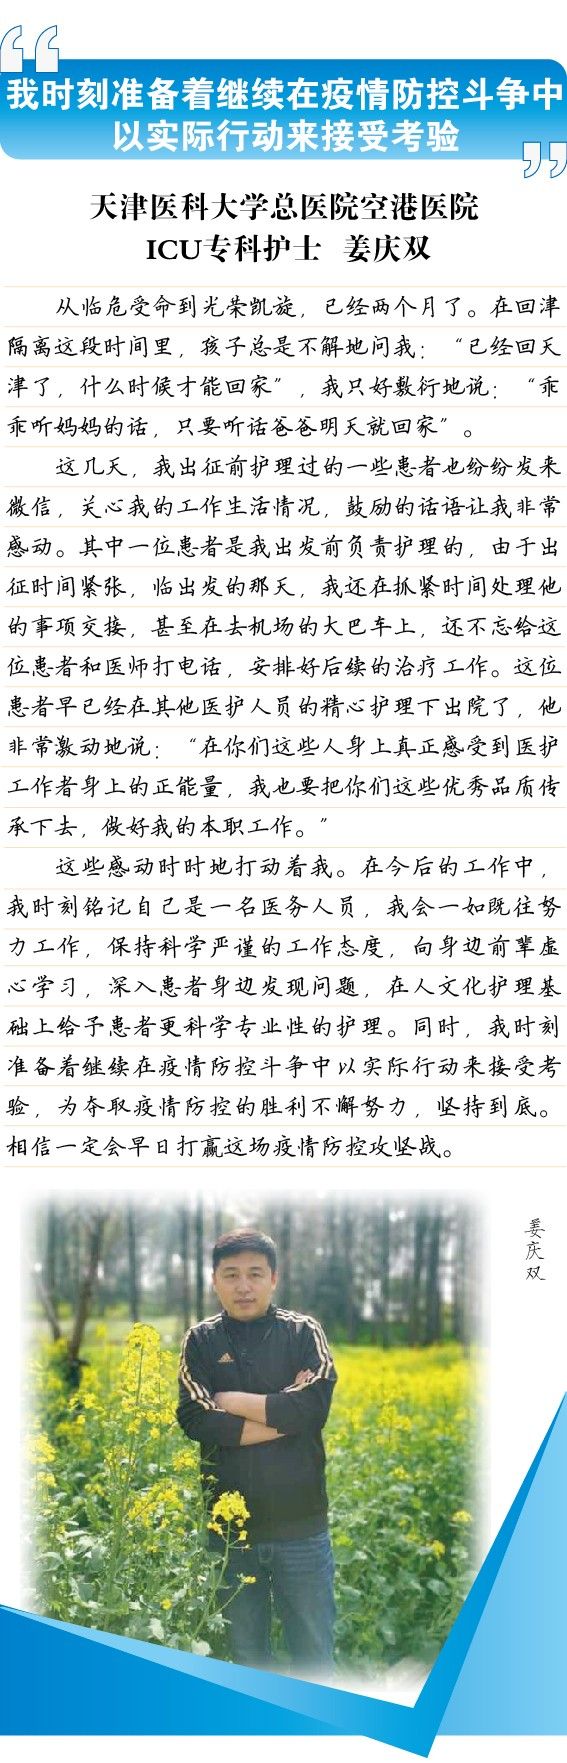 我时刻准备着继续在疫情防控斗争中
以实际行动来接受考验
天津医科大学总医院空港医院
ICU专科护士 姜庆双
从临危受命到光荣凯旋，已经两个月了。在回津
隔离这段时间里，孩子总是不解地问我：“已经回天
津了，什么时候才能回家”，我只好敷衍地说：“乖
乖听妈妈的话，只要听话爸爸明天就回家”。
这几天，我出征前护理过的一些患者也纷纷发来
微信，关心我的工作生活情况，鼓励的话语让我非常
感动。其中一位患者是我出发前负责护理的，由于出
征时间紧张，临出发的那天，我还在抓紧时间处理他
的事项交接，甚至在去机场的大巴车上，还不忘给这
位患者和医师打电话，安排好后续的治疗工作。这位
患者早已经在其他医护人员的精心护理下出院了，他
非常激动地说：“在你们这些人身上真正感受到医护
工作者身上的正能量，我也要把你们这些优秀品质传
承下去，做好我的本职工作。”
这些感动时时地打动着我。在今后的工作中，
我时刻铭记自己是一名医务人员，我会一如既往努
力工作，保持科学严谨的工作态度，向身边前辈虚
心学习，深入患者身边发现问题，在人文化护理基
础上给予患者更科学专业性的护理。同时，我时刻
准备着继续在疫情防控斗争中以实际行动来接受考
验，为夺取疫情防控的胜利不懈努力，坚持到底。
相信一定会早日打赢这场疫情防控攻坚战。
姜庆双
adidas